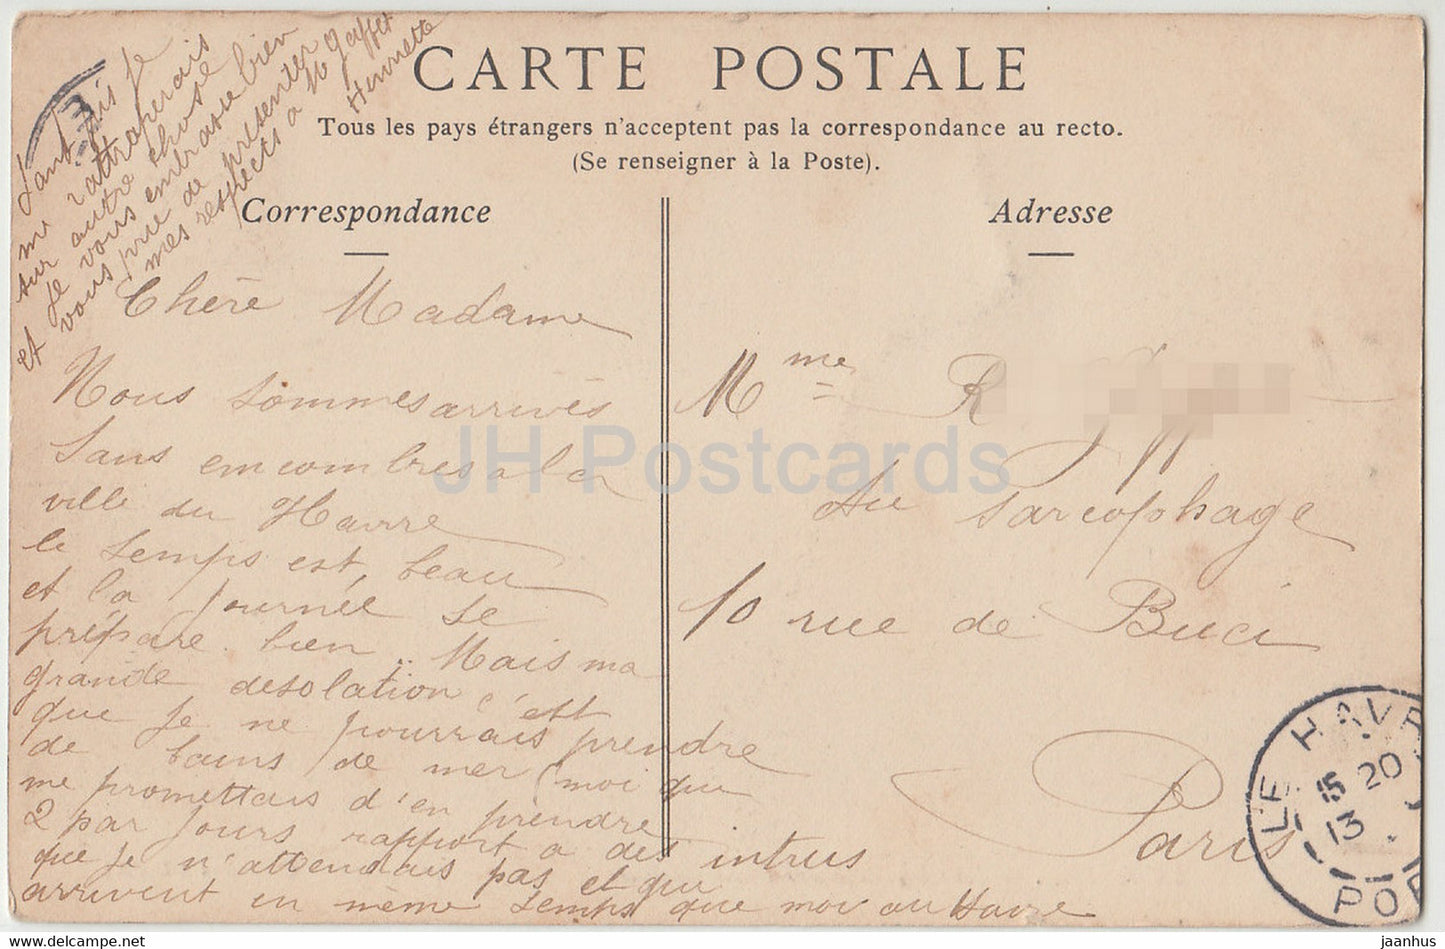 CARTE POSTALE
Tous les pays étrangers n'acceptent pas la correspondance au recto.
(Se renseigner à la Poste).
Correspondance
Adresse
Chère Madame
Nous sommes arrivés
sans encombres a la
ville du Havre
le temps est beau
et la journée se
prépare bien.. Mais ma
grande désolation c'est
que je ne pourrais prendre
de bains de mer (moi que
me promettais d'en prendre
2 par jours rapport a des intrus
que je n'attendais pas et qui
arrivent en même temps que moi au Havre
Tant pis je
me rattraperais
sur autre chose
Je vous embrasse bien
et vous prie de presenter
mes respects a M Gaffet
Henriette
Mme R
Au Sarcophage
10 rue de Buci
Paris
LE HAVR
15 20
13
POR
JH Postcards
www.delcampe.net
jaanhus